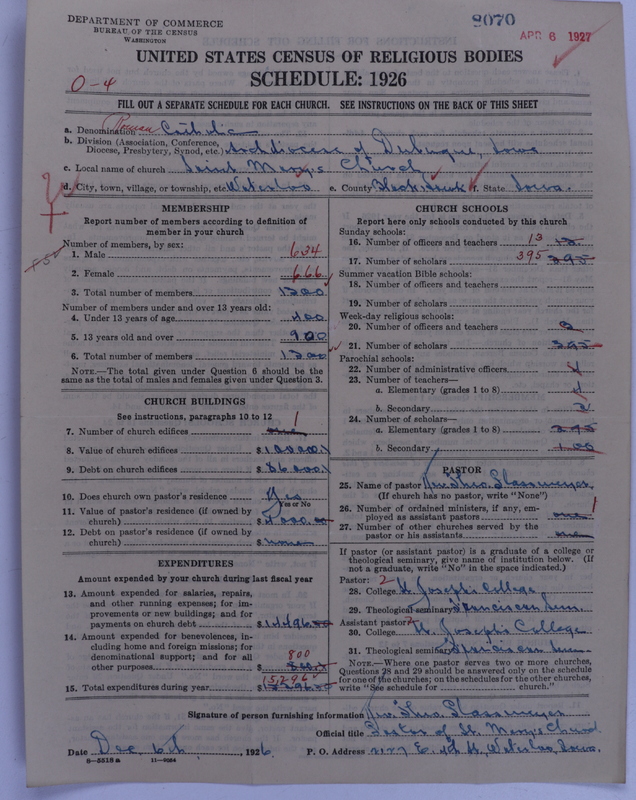 DEPARTMENT OF COMMERCE
BUREAU OF THE CENSUS
WASHINGTON
8070
APR 6 1927
UNITED STATES CENSUS OF RELIGIOUS BODIES
SCHEDULE: 1926
0-4
FILL OUT A SEPARATE SCHEDULE FOR EACH CHURCH. SEE INSTRUCTIONS ON THE BACK OF THIS SHEET
a. Denomination Roman Catholic
b. Division (Association, Conference, Diocese, Presbytery, Synod, etc.) Archdiocese of Dubuque, Iowa
c. Local name of church Saint Mary's Church
d. City, town, village, or township, etc. Waterloo e. County Black Hawk f. State Iowa.
MEMBERSHIP
Report number of members according to definition of
member in your church
Number of members, by sex:
1. Male 634
2. Female 666
3. Total number of members 1300
Number of members under and over 13 years old:
4. Under 13 years of age 400
5. 13 years old and over 900
6. Total number of members 1300
NOTE.—The total given under Question 6 should be
same as the total of males and females given under Question 3.
CHURCH BUILDINGS
See instructions, paragraphs 10 to 12
7. Number of church edifices one 1
8. Value of church edifices $
9. Debt on church edifices $
10. Does church own pastor's residence Yes
Yes or No
11. Value of pastor's residence (if owned by
church) $
12. Debt on pastor's residence (if owned by
church) $ none
EXPENDITURES
Amount expended by your church during last fiscal year
13. Amount expended for salaries, repairs,
and other running expenses; for im-
provements or new buildings; and for
payments on church debt $14496.00
14. Amount expended for benevolences, in-
cluding home and foreign missions; for
denominational support; and for all
other purposes $ 800
15. Total expenditures during year $ 15,296
CHURCH SCHOOLS
Report here only schools conducted by this church
Sunday schools:
16. Number of officers and teachers 13
17. Number of scholars 395 395
Summer vacation Bible schools:
18. Number of officers and teachers
19. Number of scholars
Week-day religious schools:
20. Number of officers and teachers
21. Number of scholars 395
Parochial schools:
22. Number of administrative officers
23. Number of teachers—
a. Elementary (grades 1 to 8)
b. Secondary 2
24. Number of scholars—
a. Elementary (grades 1 to 8)
b. Secondary 100
PASTOR
25. Name of pastor Rev. Theo. Stassmeyer
(If church has no pastor, write "None")
26. Number of ordained ministers, if any, em-
ployed as assistant pastors one 1
27. Number of other churches served by the
pastor or his assistants
If pastor (or assistant pastor) is a graduate of a college or
theological seminary, give name of institution below. (If
not a graduate, write "No" in the space indicated.)
Pastor: 2
28. College St. Joseph's College
29. Theological seminary Franciscan Sem.
Assistant pastor: 2
30. College St. Joseph's College
31. Theological seminary Franciscan Sem.
NOTE.—Where one pastor serves two or more churches,
Questions 28 and 29 should be answered only on the schedule
for one of the churches; on the schedules for the other churches,
write "See schedule for church."
Signature of person furnishing information Rev. Theo. Stassmeyer
Official title Pastor of St. Mary's Church
Date Dec. 6th, 1926 P. O. Address 2127 E. 4th St, Waterloo, Iowa.
8—5518 a 11—9064